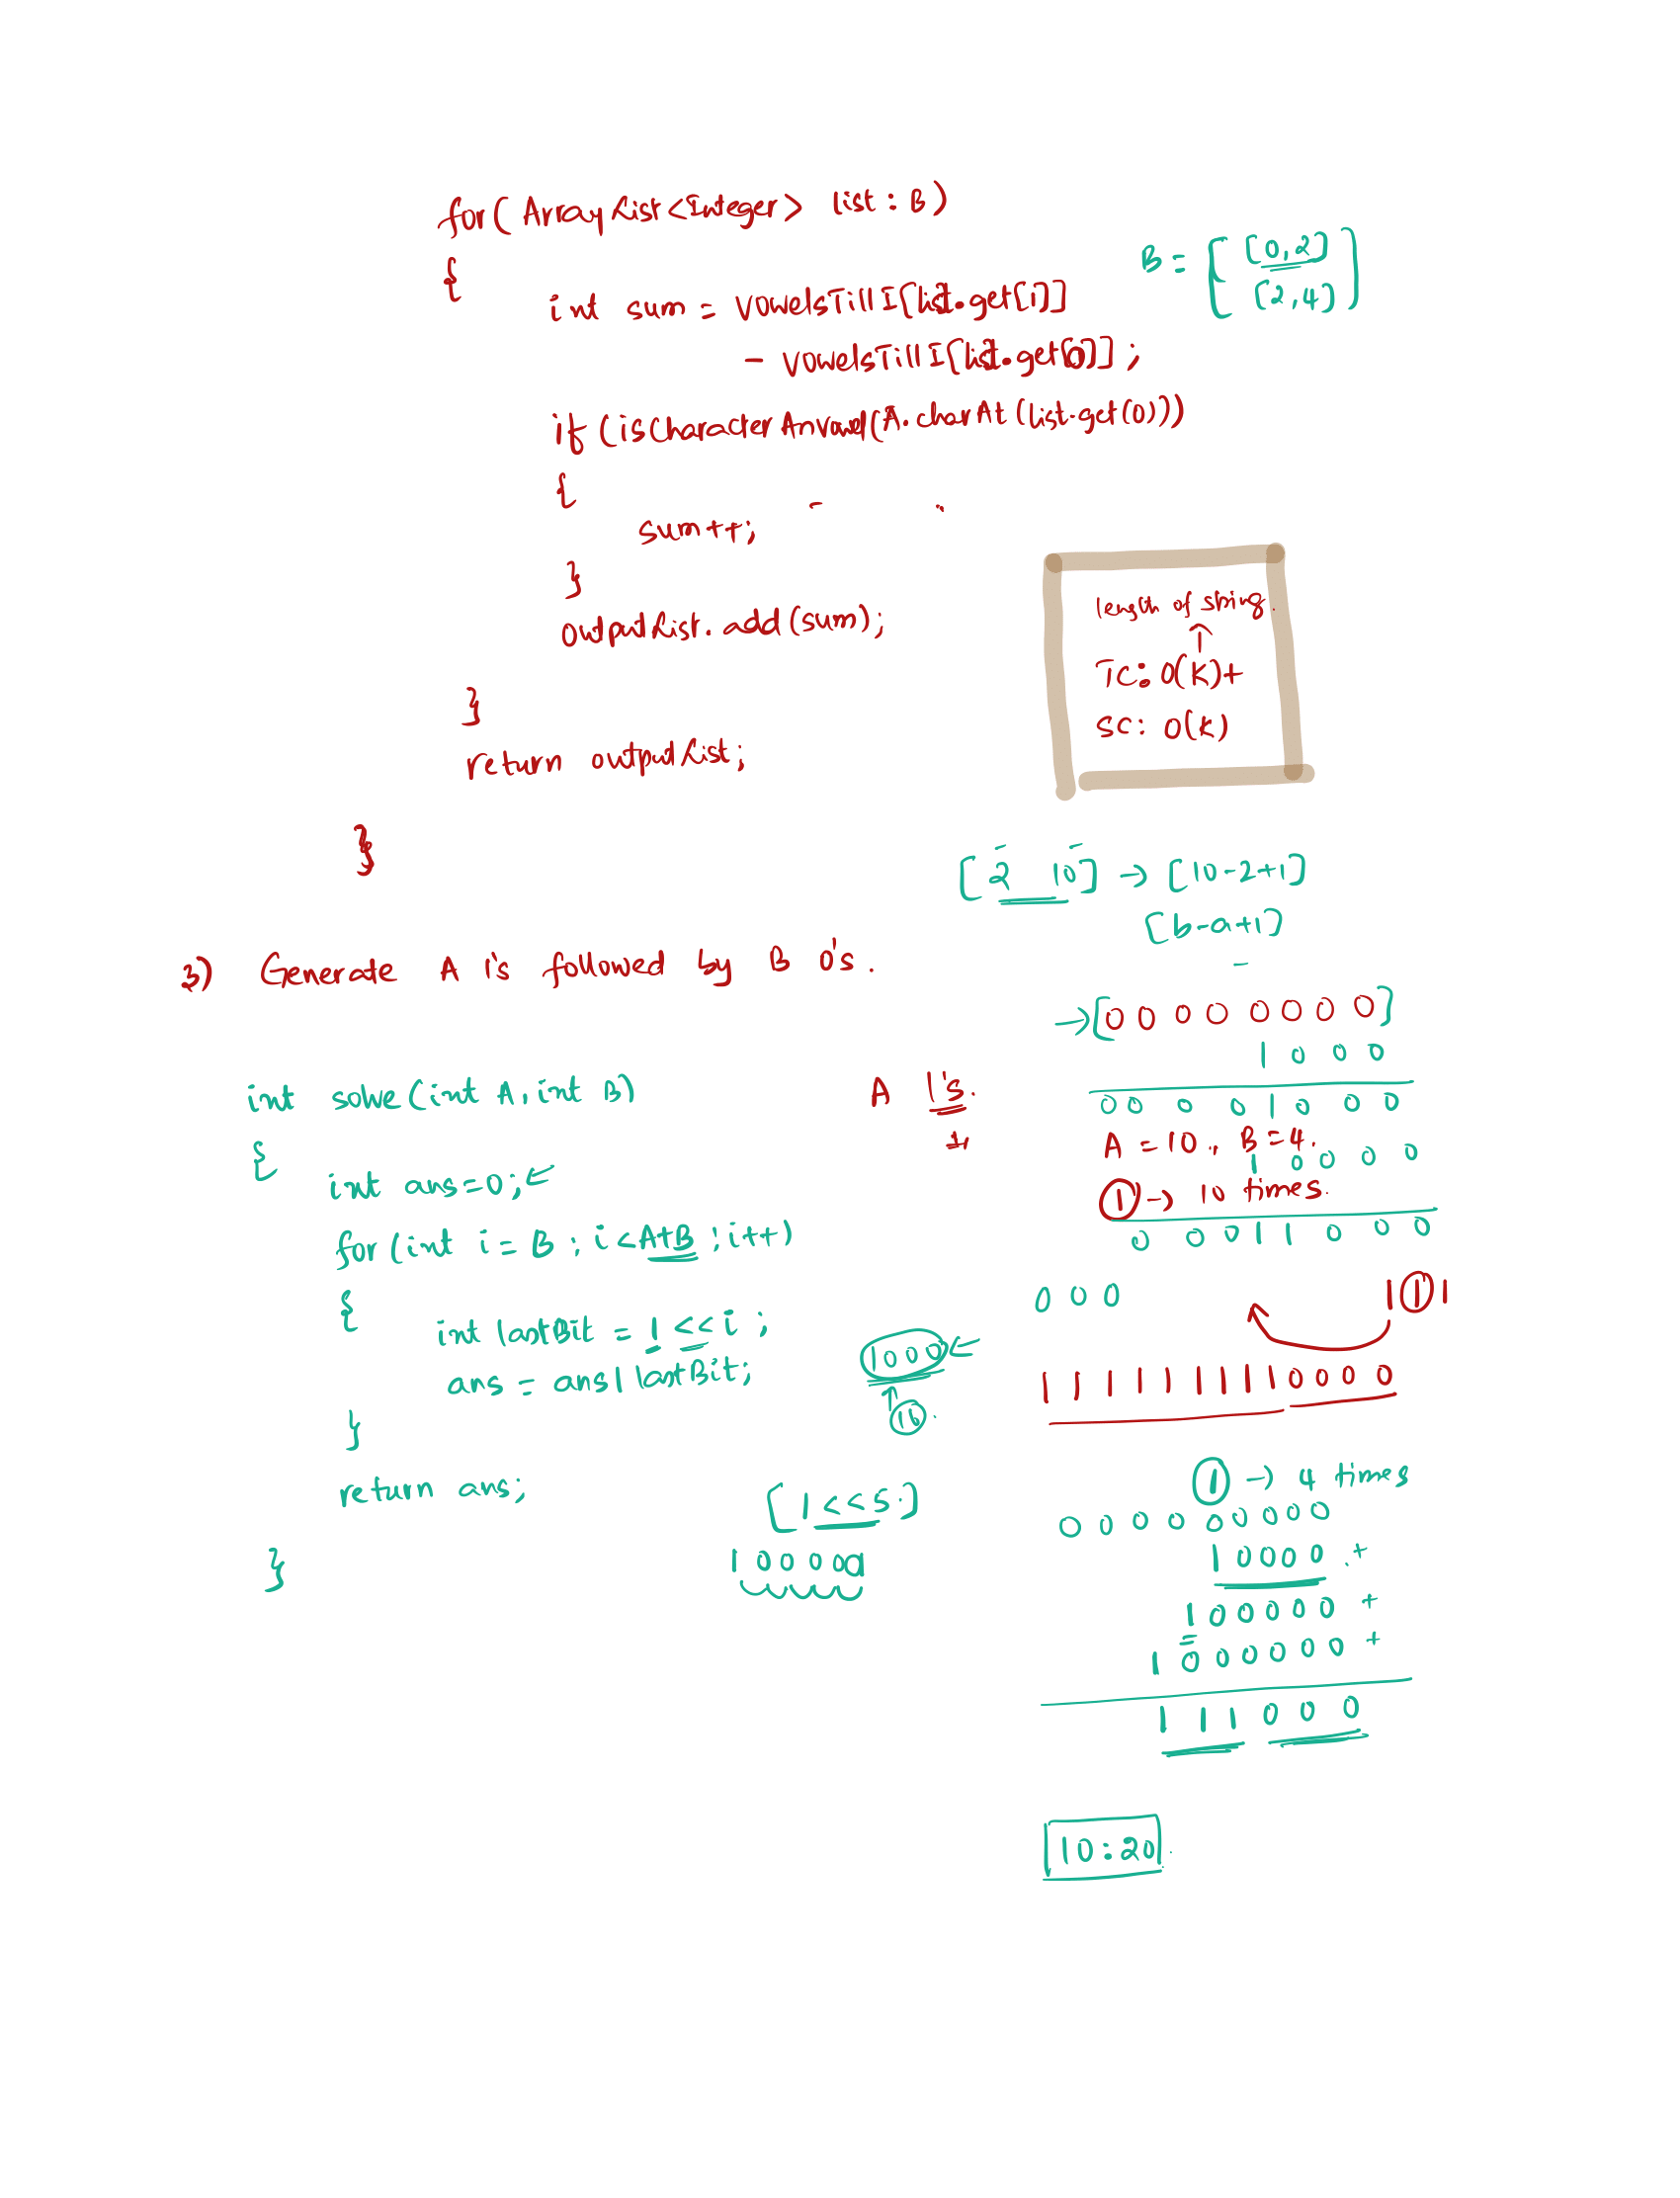 for( ArrayList<Integer> list : B)
{
int sum = vowelsTillI[list.get[1]]
- vowelsTillI[list.get[0]] ;
B = [ [0,2]
[2,4] ]
if (isCharacterAnvowel(A.charAt(list.get(0)))
{
sum++;
}
outputList.add(sum);
}
return outputList;
}
length of string.
↑
TC: O(K)+
SC: O(K)
[2 10] → [10-2+1]
[b-a+1]
3) Generate A 1's followed by B 0's.
int solve(int A, int B)
{
int ans=0; ←
for(int i = B ; i < A+B ; i++)
{
int lastBit = 1 << i ;
ans = ans | lastBit;
}
return ans;
}
A 1's.
1000 ←
↑
16.
[1<<5.]
→ [0 0 0 0 0 0 0 0]
1 0 0 0
0 0 0 0 1 0 0 0
A = 10., B=4.
1 0 0 0 0
1 → 10 times.
0 0 0 1 1 0 0 0
0 0 0
1 1 1
1 1 1 1 1 1 1 1 0 0 0 0
1 → 4 times
0 0 0 0 0 0 0 0 0
1 0 0 0 0 . +
1 0 0 0 0 0 +
1 0 0 0 0 0 0 +
1 1 1 0 0 0
10:20